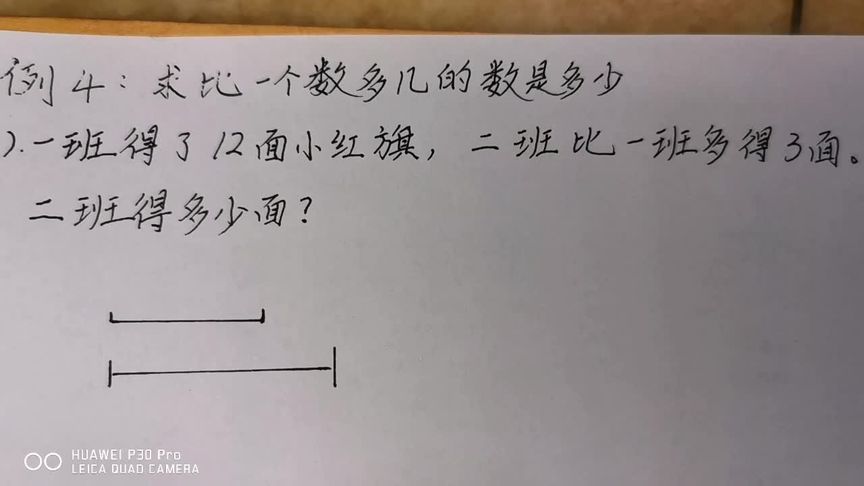 例4：求比一个数多几的数是多少
).一班得了12面小红旗，二班比一班多得3面。
二班得多少面？
HUAWEI P30 Pro
LEICA QUAD CAMERA